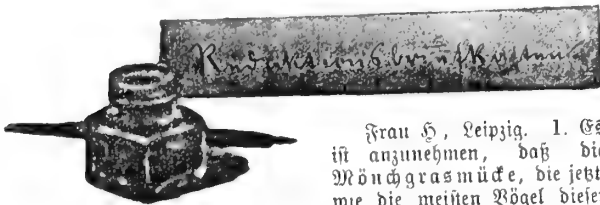 Redaktionsbriefkasten
Frau H, Leipzig. 1. Es
ist anzunehmen, daß die
Mönchgrasmücke, die jetzt
wie die meisten Vögel dieser